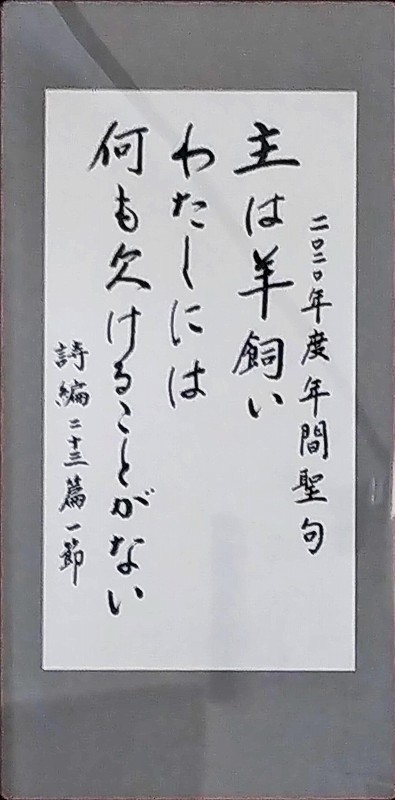 二〇二〇年度年間聖句
主は羊飼い
わたしには
何も欠けることがない
詩編二十三篇一節